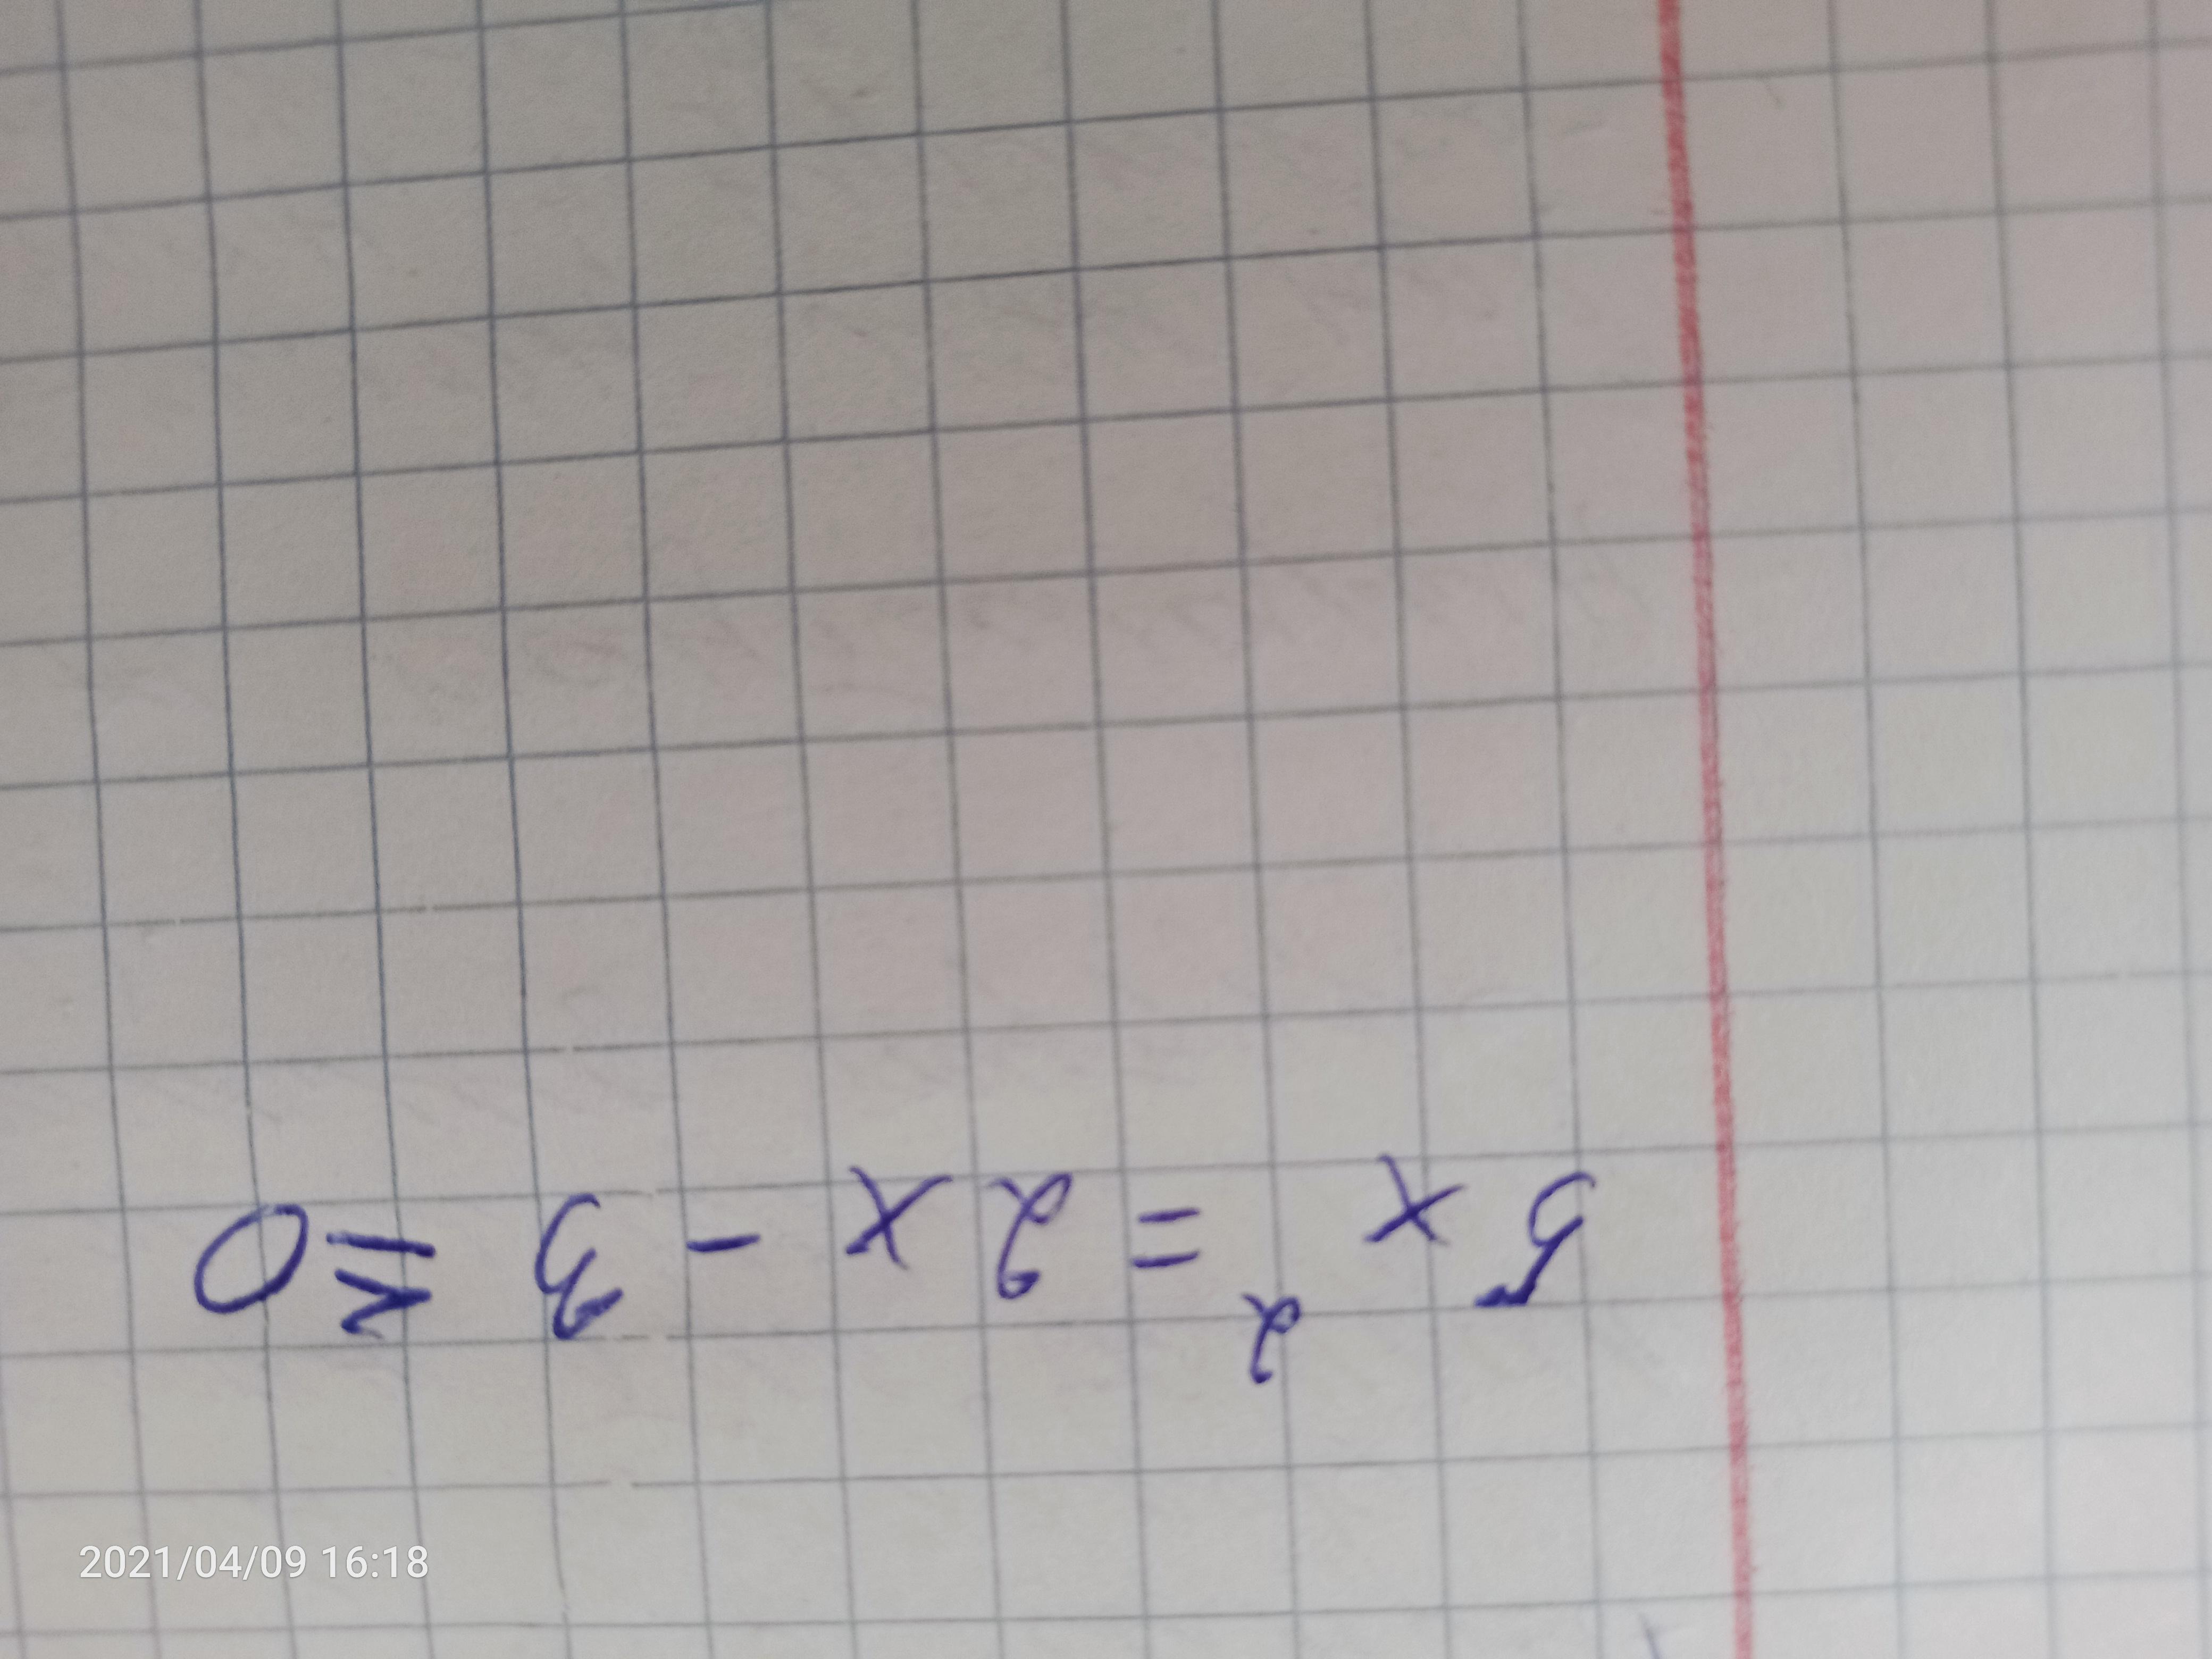 5x² = 2x - 3 ≤ 0
2021/04/09 16:18